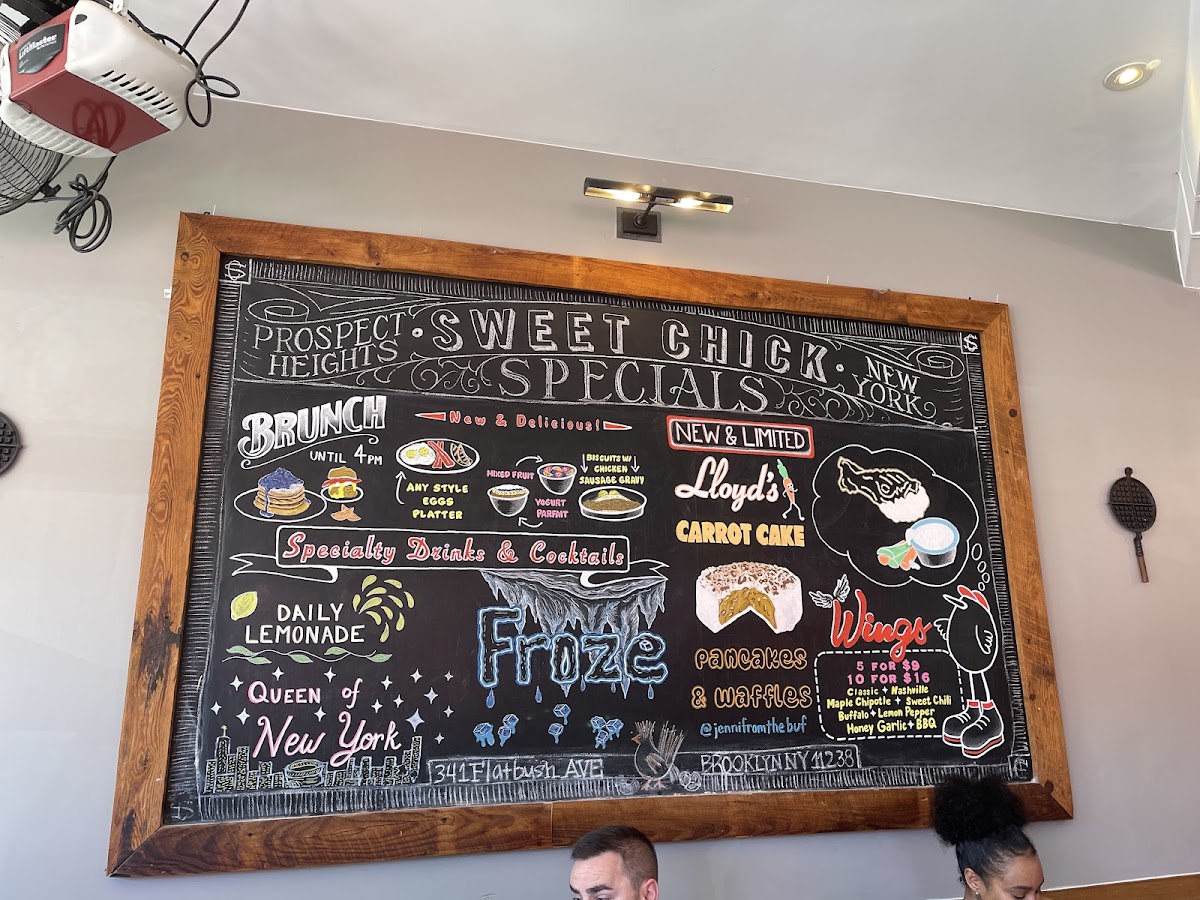 LiftMaster
PROSPECT
HEIGHTS
• SWEET CHICK •
SPECIALS
NEW
YORK
BRUNCH
UNTIL 4PM
New & Delicious!
ANY STYLE
EGGS
PLATTER
MIXED FRUIT
YOGURT
PARFAIT
BISCUITS W/
CHICKEN
SAUSAGE GRAVY
Specialty Drinks & Cocktails
DAILY
LEMONADE
QUEEN of
New York
Froze
NEW & LIMITED
Lloyd's
CARROT CAKE
pancakes
& waffles
@jennifromthebuf
Wings
5 FOR $9
10 FOR $16
Classic + Nashville
Maple Chipotle + Sweet Chili
Buffalo + Lemon Pepper
Honey Garlic + BBQ
341 Flatbush AVE
BROOKLYN NY 11238